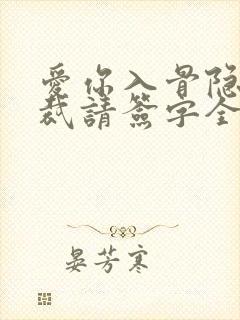 愛你入骨隐
裁請簽字全
晏芳寒